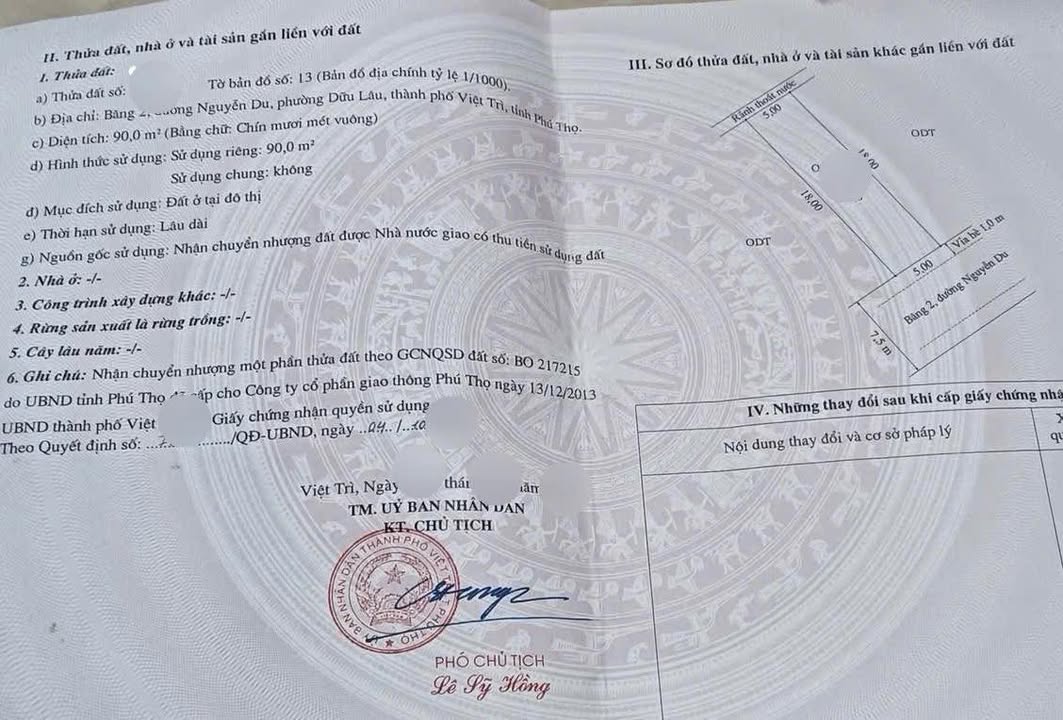 II. Thửa đất, nhà ở và tài sản gắn liền với đất
1. Thửa đất:
a) Thửa đất số: Tờ bản đồ số: 13 (Bản đồ địa chính tỷ lệ 1/1000).
b) Địa chỉ: Băng 2, đường Nguyễn Du, phường Dữu Lâu, thành phố Việt Trì, tỉnh Phú Thọ.
c) Diện tích: 90,0 m² (Bằng chữ: Chín mươi mét vuông)
d) Hình thức sử dụng: Sử dụng riêng: 90,0 m²
Sử dụng chung: không
đ) Mục đích sử dụng: Đất ở tại đô thị
e) Thời hạn sử dụng: Lâu dài
g) Nguồn gốc sử dụng: Nhận chuyển nhượng đất được Nhà nước giao có thu tiền sử dụng đất
2. Nhà ở: -/-
3. Công trình xây dựng khác: -/-
4. Rừng sản xuất là rừng trồng: -/-
5. Cây lâu năm: -/-
6. Ghi chú: Nhận chuyển nhượng một phần thửa đất theo GCNQSD đất số: BO 217215
do UBND tỉnh Phú Thọ cấp cho Công ty cổ phần giao thông Phú Thọ ngày 13/12/2013
UBND thành phố Việt Giấy chứng nhận quyền sử dụng
Theo Quyết định số: /QĐ-UBND, ngày ..04../...10
Việt Trì, Ngày
TM. UỶ BAN NHÂN DÂN
KT. CHỦ TỊCH
ỦY BAN NHÂN DÂN THÀNH PHỐ VIỆT TRÌ T. PHÚ THỌ
PHÓ CHỦ TỊCH
Lê Sỹ Hồng
III. Sơ đồ thửa đất, nhà ở và tài sản khác gắn liền với đất
Rãnh thoát nước
5,00
ODT
18,00
O
18,00
ODT
5,00
Vỉa hè 1,0 m
Băng 2, đường Nguyễn Du
7,5 m
IV. Những thay đổi sau khi cấp giấy chứng nhậ
Nội dung thay đổi và cơ sở pháp lý
X
qu